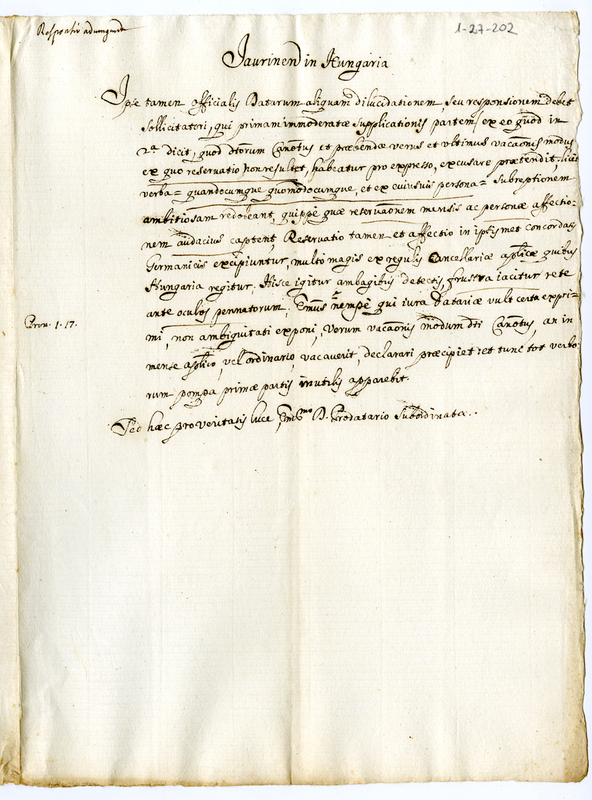 1-27-202
Jaurinen in Hungaria
Ipse tamen officialis Datarum aliquam dilucidationem, seu responsionem debet
sollicitatori, qui primam immoderatæ supplicationis partem, ex eo quod in
2a dicit, quod dictorum Canotus et præbendæ verus et ultimus vacaonis modus
ex quo reservatio non resultet, habeatur pro expresso, excusare prætendit, licet
verba quandocumque quomodocumque, et ex cuiusvis persona subreptionem
ambitiosam redoleant, quippe quæ reservaonem mensis ac personæ affectio-
nem audacius captent, Reservatio tamen et affectio in ipsismet concordatis
Germanicis excipiuntur, multo magis ex regulis Cancellariæ aplicæ quibus
Hungaria regitur. Hisce igitur ambagibus detectis, frustra iacitur rete
ante oculos pennatorum. Emus nempè qui iura Datariæ vult certa expri-
Prov. 1. 17.
mi, non ambiguitati exponi, verum vacaonis modum dti Canotus, an in
mense aplico, vel ordinario, vacaverit, declarari præcipiet et tunc tot verbo
rum pompa primæ partis inutilis apparebit.
Sed hæc pro veritatis luce Emo D. Prodatario subordinata.